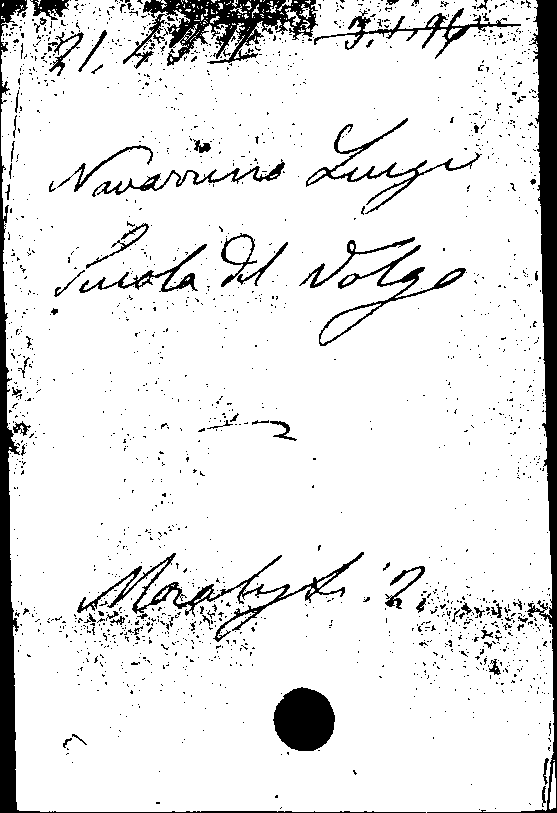 21. 4 J. 11 3.1.96
Navarrino Luigi
Scuola del Volgo
Moralisti. 2.